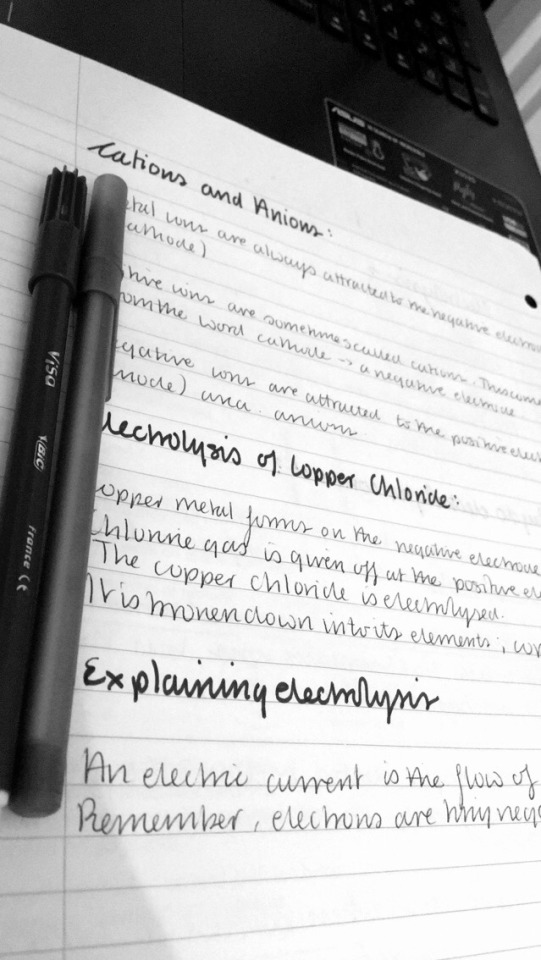 ASUS
Cations and Anions:
etal ions are always attracted to the negative electrod
cathode)
itive ions are sometimes called cations. This come
from the word cathode → a negative electrode
egative ions are attracted to the positive elect
node) aka. anions
lectrolysis of Copper Chloride:
opper metal forms on the negative electrode
Chlorine gas is given off at the positive ele
The copper chloride is electrolysed.
It is broken down into its elements; cop
Explaining electrolysis
An electric current is the flow of
Remember, electrons are tiny nega
Visa
BIC
France CE